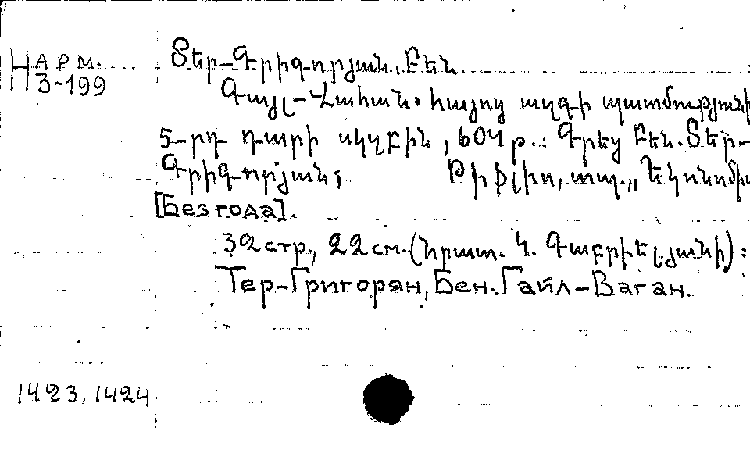 АРМ.
Н 3-199
Տեր-Գրիգորյան, Բեն
Գայլ-Վահան. հայոց ազգի պատմությանի
5-րդ դարի սկզբին, 604 թ.: Գրեց Բեն. Տեր-
Գրիգորյանց. Թիֆլիս, տպ. „Էկոնոմիա
[Без года].
32 стр., 22 см. (հրատ. Կ. Գաբրիելյանի):
Тер-Григорян, Бен. Гайл-Ваган.
1423, 1424